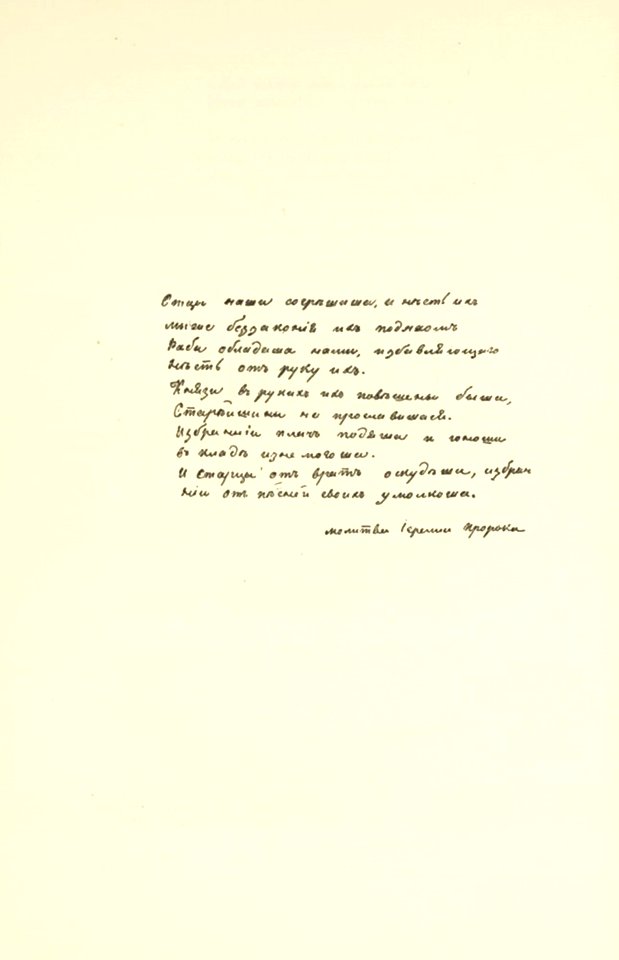 Отцы наши согрѣшиша, и нѣсть ихъ
мы же беззаконія ихъ подъяхомъ
Раби обладаша нами, избавляющаго
нѣсть отъ руку ихъ.
Князи въ рукахъ ихъ повѣшены быша,
Старѣйшины не прославишася.
Избранніи плачъ подъяша и юноши
въ кладѣ изнемогоша.
И старцы отъ вратъ оскудѣша, избран
ніи отъ пѣсней своихъ умолкоша.
молитва Іереміи Пророка